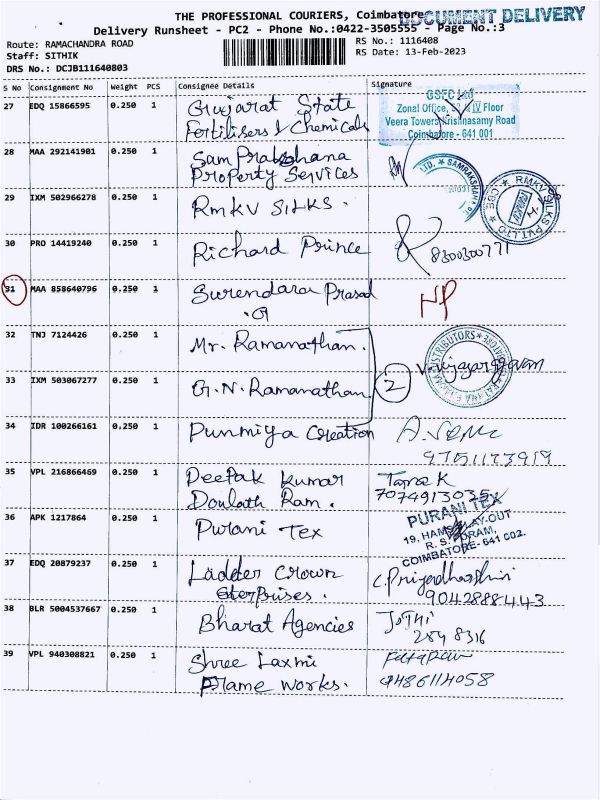 THE PROFESSIONAL COURIERS, Coimbatore
DOCUMENT DELIVERY
Delivery Runsheet - PC2 - Phone No.:0422-3505555 - Page No.:3
Route: RAMACHANDRA ROAD
RS No.: 1116408
Staff: SITHIK
RS Date: 13-Feb-2023
DRS No.: DCJB111640803
S No Consignment No Weight PCS Consignee Details Signature
27 EDQ 15866595 0.250 1 Gujarat State
Fertilisers & Chemicals
GSFC Ltd
Zonal Office, Floor
Veera Towers, Krishnasamy Road
Coimbatore - 641 001
28 MAA 292141901 0.250 1 Sam Prakshana
Property Services
29 IXM 502966278 0.250 1 RMKV SILKS.
RMKV SILKS PVT. LTD CBE
30 PRO 14419240 0.250 1 Richard Prince
8300300771
31 MAA 858640796 0.250 1 Surendara Prasad
.G
NP
32 TNJ 7124426 0.250 1 Mr. Ramanathan.
33 IXM 503067277 0.250 1 G.N. Ramanathan
2
DISTRIBUTORS
34 IDR 100266161 0.250 1 Punmiya Creation
9751173919
35 VPL 216866469 0.250 1 Deepak Kumar
Doulath Ram.
Tara K
7074913035
36 APK 1217864 0.250 1 Purani Tex
PURANI TEX
19, LAY-OUT
R. S. PURAM,
COIMBATORE- 641 002.
37 EDQ 20879237 0.250 1 Ladder Crown
Eterprises.
C. Priyadharshini
9042888443
38 BLR 5004537667 0.250 1 Bharat Agencies
Jothi
254 8316
39 VPL 940308821 0.250 1 Shree Laxmi
Frame Works.
9486114058